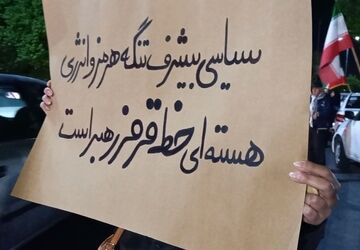 سیاسی بیشرف تنگه هرمز و انرژی
هسته ای خط قرمز رهبر است